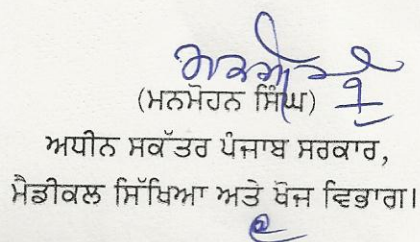 (ਮਨਮੋਹਨ ਸਿੰਘ)
ਅਧੀਨ ਸਕੱਤਰ ਪੰਜਾਬ ਸਰਕਾਰ,
ਮੈਡੀਕਲ ਸਿੱਖਿਆ ਅਤੇ ਖੋਜ ਵਿਭਾਗ।